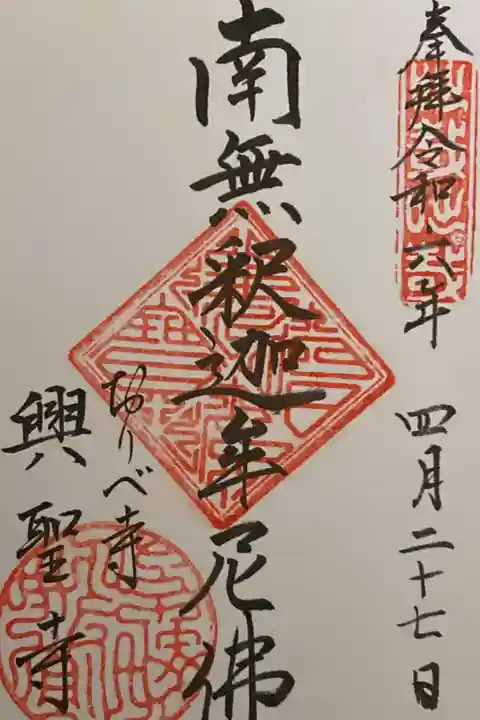 奉拝令和六年
四月二十七日
南無釈迦牟尼佛
おりべ寺
興聖寺